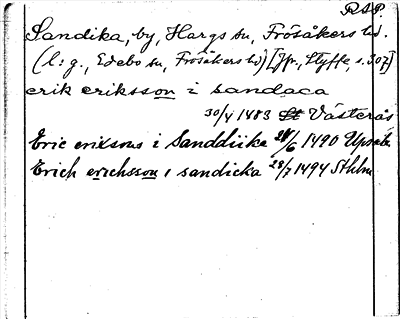 RAP.
Sandika, by, Hargs sn, Frösåkers hd.
(l: g., Edebo sn, Frösåkers hd) [Jfr., Styffe, s. 307]
erik eriksson i sandaca
30/4 1483 St Västerås
Eric eriksons i Sanddiike 28/6 1490 Upsala
Erich erichsson i sandicka 28/7 1494 Sthlm